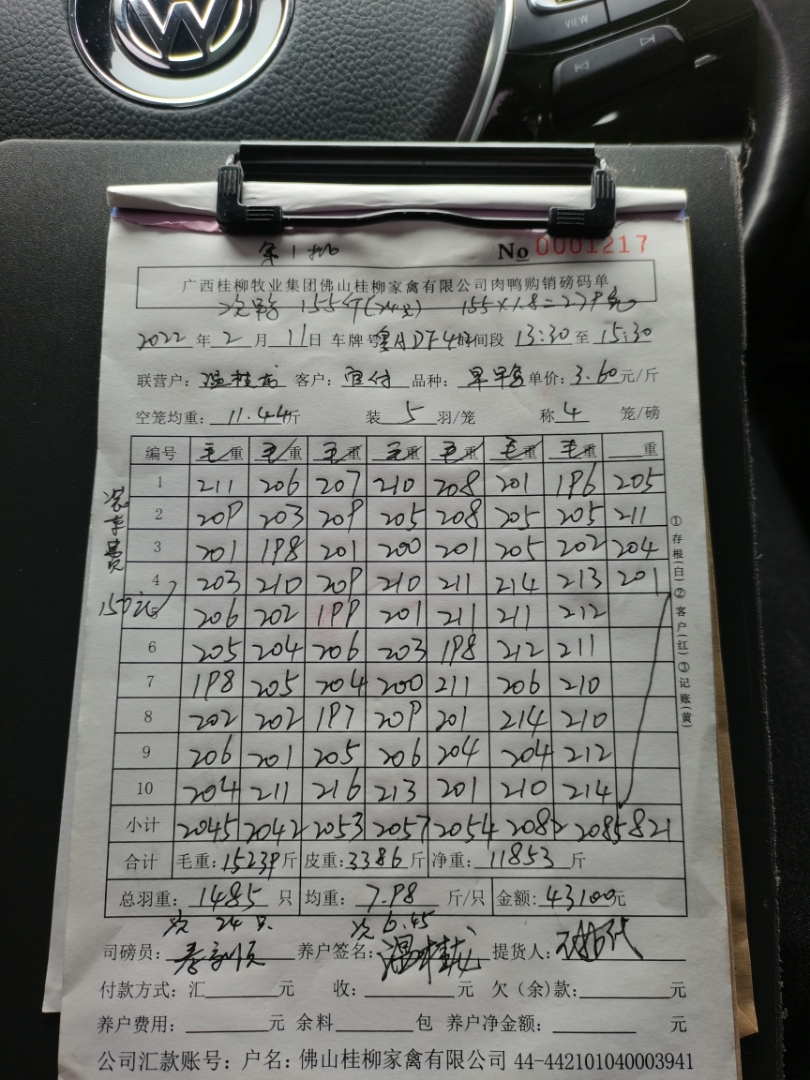 VIEW
第1批
No 0001217
广西桂柳牧业集团佛山桂柳家禽有限公司肉鸭购销磅码单
155斤(24只) 155×1.8=279元
2022年2月11日 车牌号 时间段 13:30至15:30
联营户:温桂龙 客户: 品种: 单价:3.60元/斤
空笼均重:11.44斤 装5羽/笼 称4笼/磅
编号 毛重 毛重 毛重 毛重 毛重 毛重 毛重 重
1 211 206 207 210 208 201 196 205
2 209 203 209 205 208 205 205 211
3 201 198 201 200 201 205 202 204
4 203 210 209 210 211 214 213 201
206 202 199 201 211 211 212
6 205 204 206 203 198 212 211
7 198 205 204 200 211 206 210
8 202 202 197 209 201 214 210
9 206 201 205 206 204 204 212
10 204 211 216 213 201 210 214
小计 2045 2042 2053 2057 2054 2082 2085 821
合计 毛重:15239斤 皮重:3386斤 净重:11853斤
总羽重:1485只 均重:7.98斤/只 金额:43100元
次24只 次6.45
司磅员: 养户签名:温桂龙 提货人:
付款方式:汇 元 收: 元 欠(余)款: 元
养户费用: 元 余料 包 养户净金额: 元
公司汇款账号:户名:佛山桂柳家禽有限公司 44-442101040003941
装车费
150元
①存根(白)②客户(红)③记账(黄)